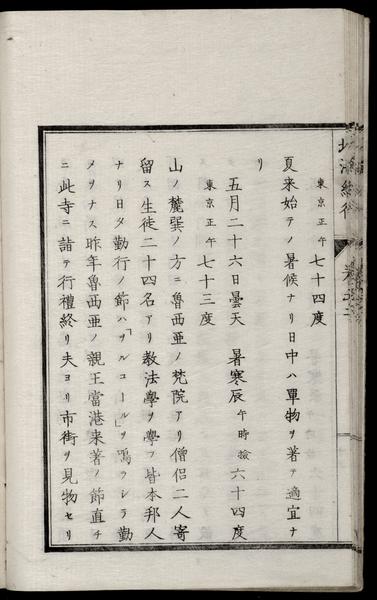 東京正午七十四度
夏来始テノ暑候ナリ日中ハ單物ヲ著テ適宜ナ
リ
五月二十六日曇天 暑寒辰午時撿六十四度
東京正午七十三度
山ノ麓巽ノ方ニ魯西亜ノ梵院アリ僧侶二人寄
留ス生徒二十四名アリ教法學ヲ學フ皆本邦人
ナリ日夕勤行ノ節ハ「ヲルコール」ヲ鳴ラシテ勤
メヲナス昨年魯西亜ノ親王當港来著ノ節直チ
ニ此寺ニ諸テ行禮終リ夫ヨリ市街ヲ見物セリ